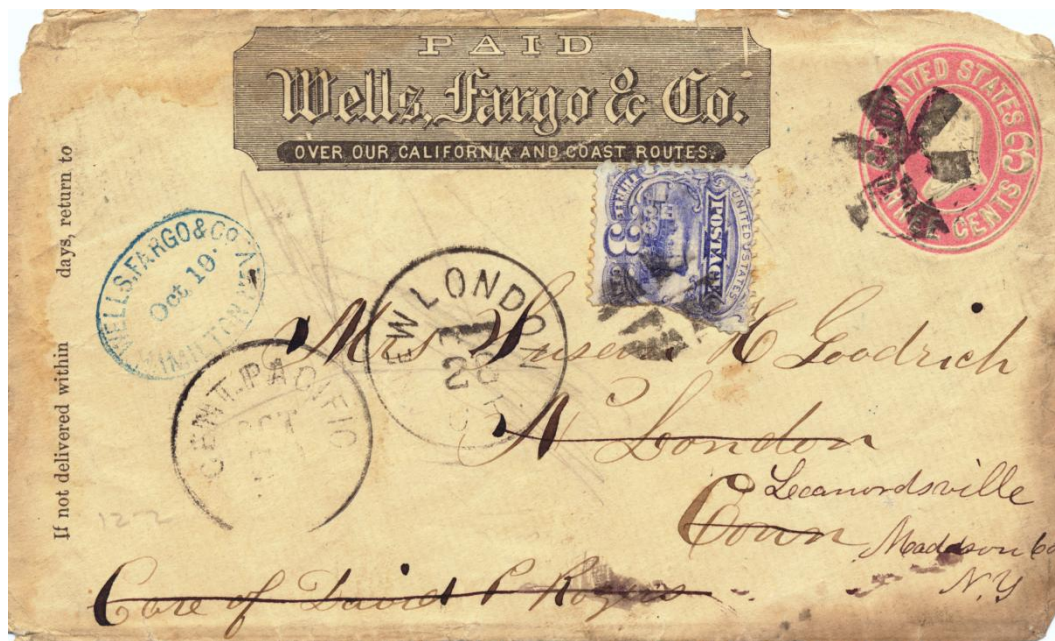 PAID
Wells, Fargo & Co.
OVER OUR CALIFORNIA AND COAST ROUTES.
UNITED STATES
CENTS
UNITED STATES
POSTAGE
3
If not delivered within days, return to
WELLS, FARGO & CO
Oct 19
EW LONDON
CENT. PACIFIC
Mrs H Goodrich
N London
Conn
Leeanordsville
Maddson Co
N.Y
Care of David P Rogers
12-2